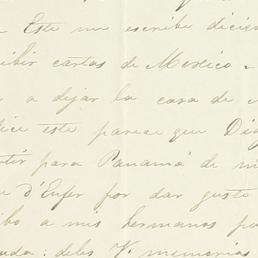 Este me escribe dicie
cibir cartas de Mexico -
a dejar la casa de
dice este parece que Di
tir para Panamá de m
e d'Enfer por dar gusto
bo a mis hermanos po
uda: deles V. memorias